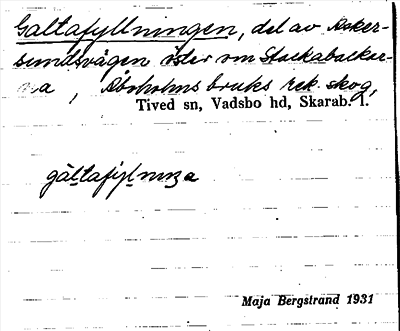 Galtafyllningen, del av Asker-
sundsvägen öster om Stackabackar-
na, Åboholms bruks rek. skog,
Tived sn, Vadsbo hd, Skarab. l.
gàltafyl̥nıŋa
Maja Bergstrand 1931